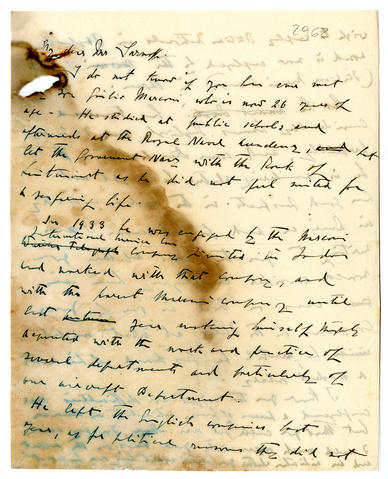 2963
My dear Mr Sarnoff.
I do not know if you have ever met
my son Giulio Marconi, who is now 26 years of
age. He studied at public schools and
afterwards at the Royal Naval Academy, but
left the Government Navy with the Rank of
Lieutenant as he did not feel suited for
a seafaring life.
In 1933 he was engaged by the Marconi
International Marine Com
Company Limited in London
and worked with that Company, and
with the parent Marconi Company until
last year making himself
acquainted with the work and practice of
several departments and particularly of
our aircraft Department.
He left the English companies last
year, as for political reasons they did not